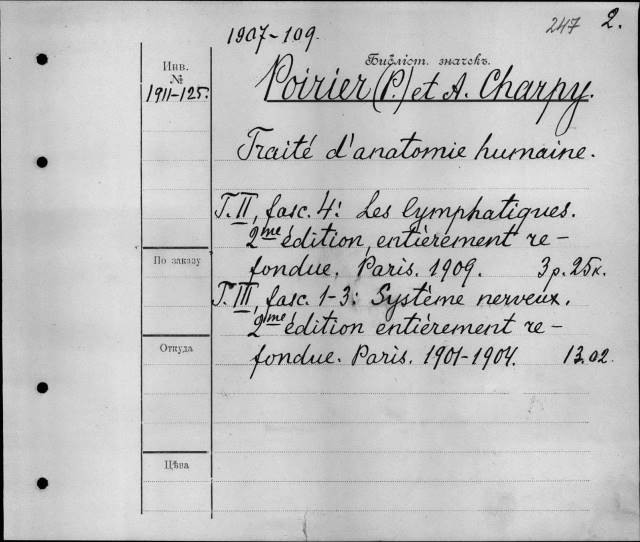 1907-109.
247 2.
Инв.
№
1911-125.
Библіот. значекъ.
Poirier (P.) et A. Charpy.
Traité d'anatomie humaine.
T. II, fasc. 4: Les lymphatiques.
2me édition, entièrement re-
fondue. Paris. 1909. 3 р. 25 к.
T. III, fasc. 1-3: Système nerveux.
2me édition entièrement re-
fondue. Paris. 1901-1904. 13.02.
По заказу
Откуда
Цѣна